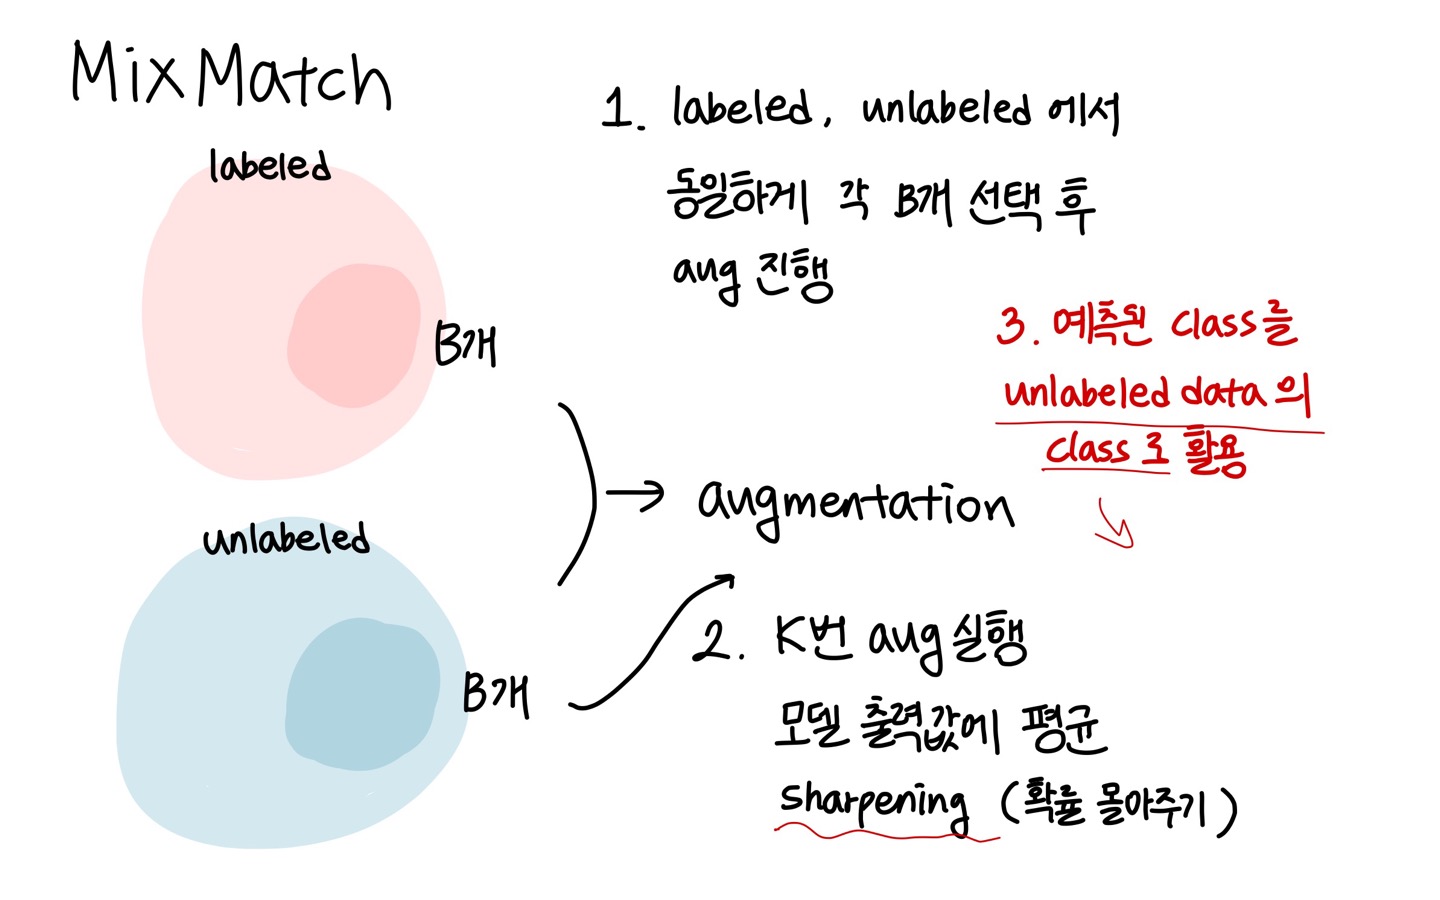 MixMatch
labeled
B개
unlabeled
B개
1. labeled, unlabeled 에서
동일하게 각 B개 선택 후
aug 진행
augmentation
2. K번 aug 실행
모델 출력값에 평균
sharpening (확률 몰아주기)
3. 예측된 class를
unlabeled data의
class로 활용